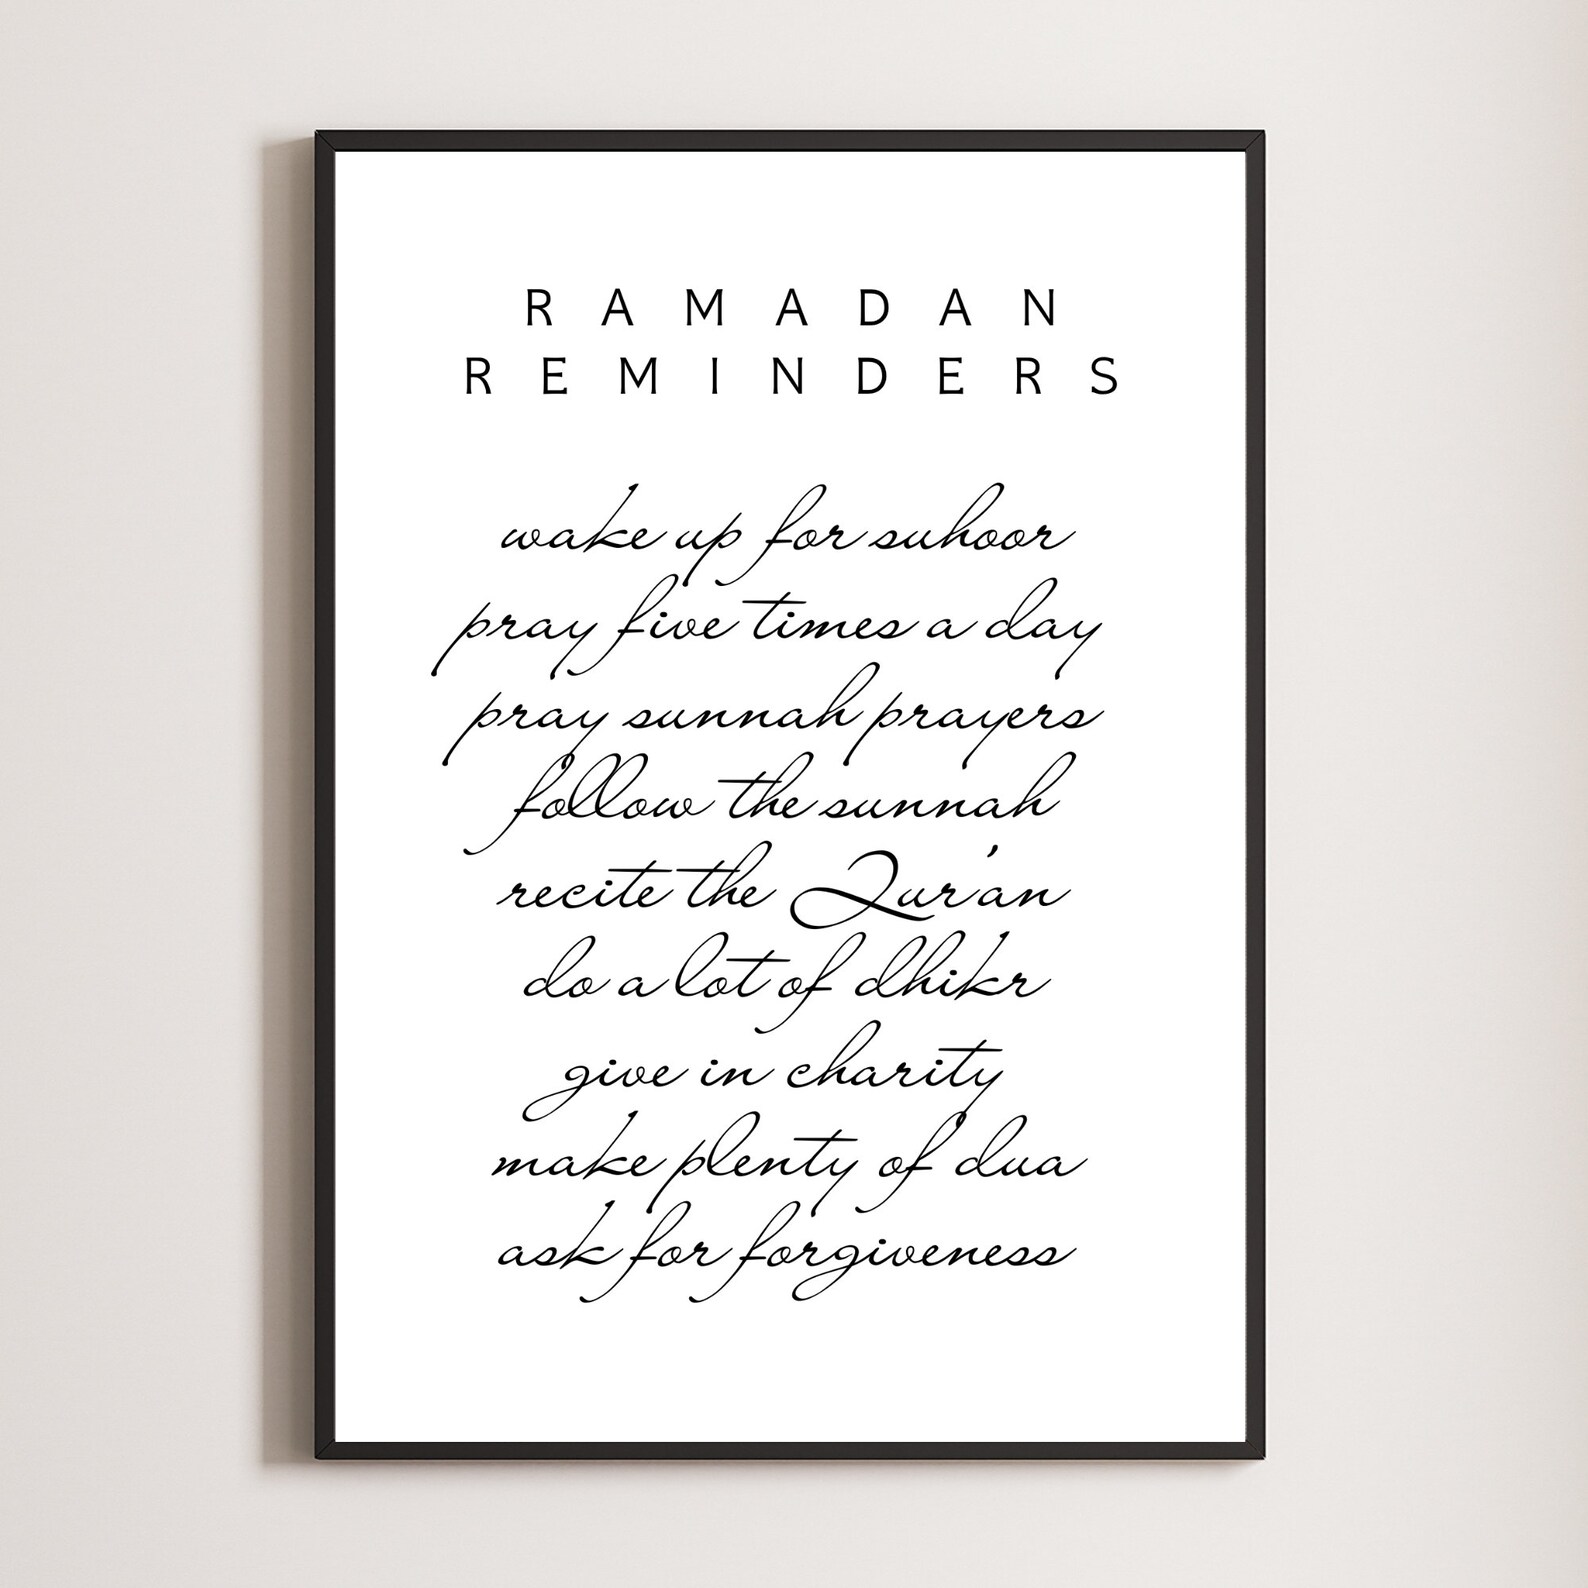 RAMADAN
REMINDERS
wake up for suhoor
pray five times a day
pray sunnah prayers
follow the sunnah
recite the Qur'an
do a lot of dhikr
give in charity
make plenty of dua
ask for forgiveness